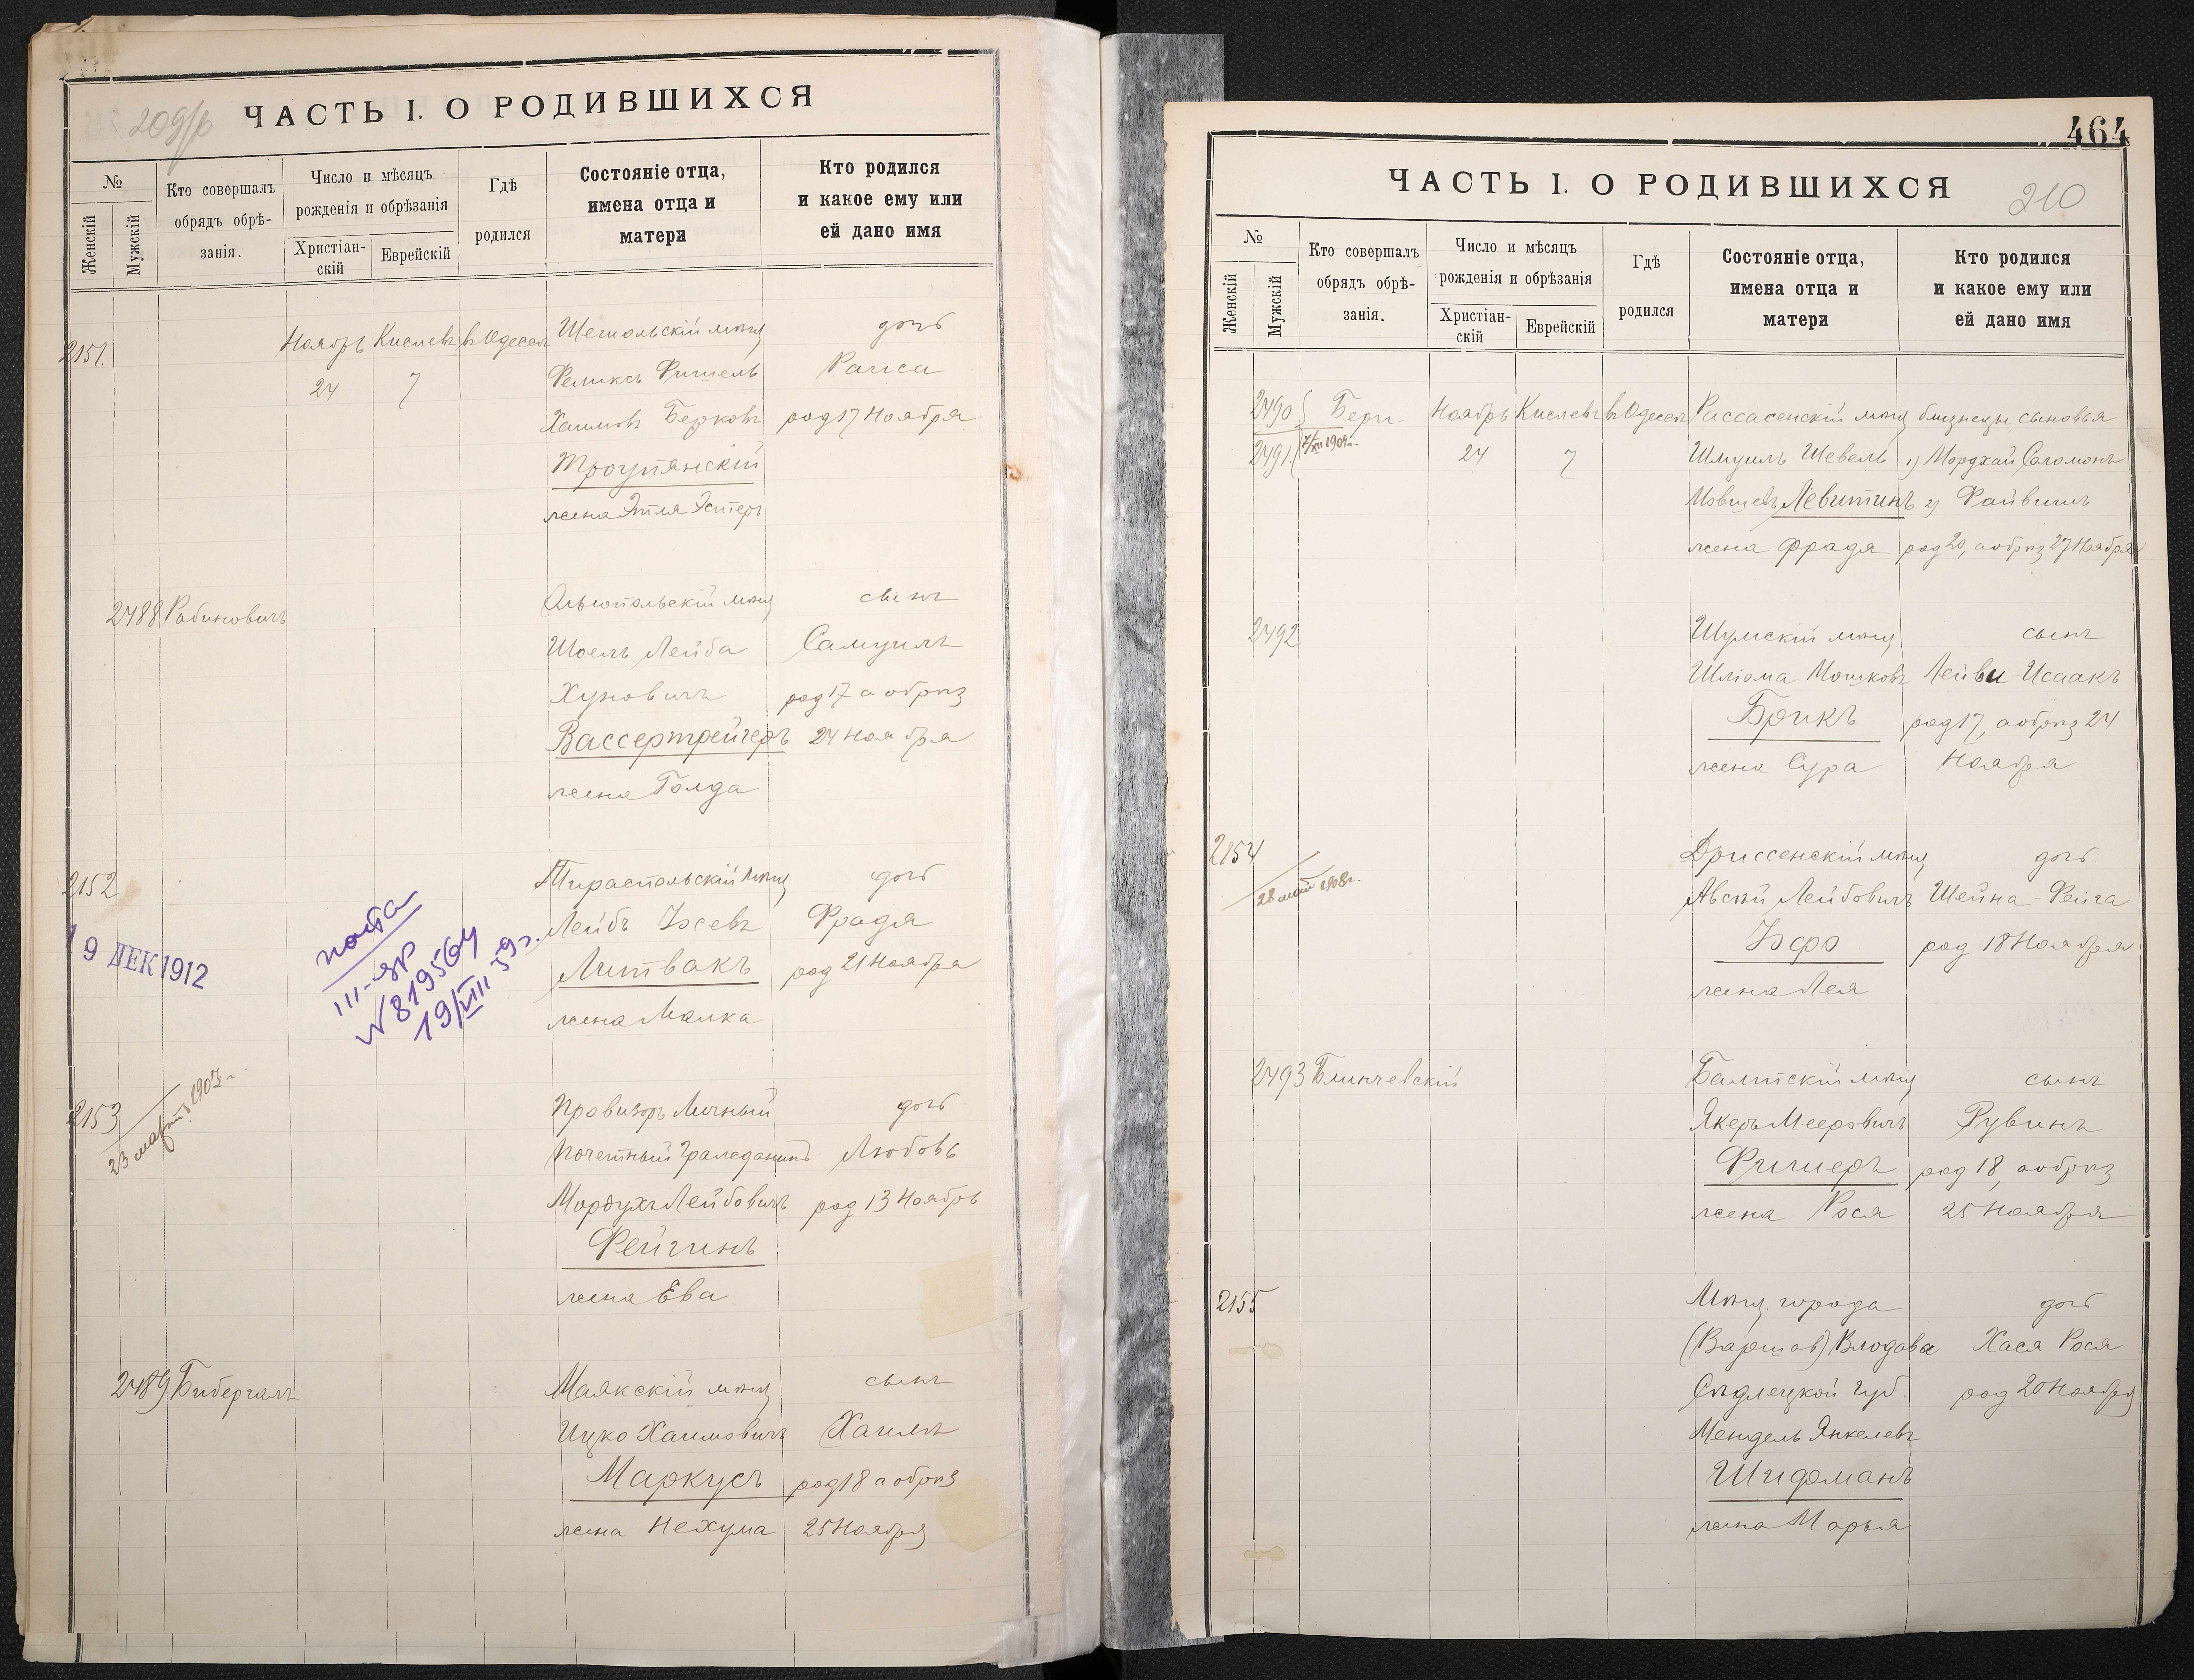 ЧАСТЬ I. О РОДИВШИХСЯ
№
Женскій
Мужскій
Кто совершалъ обрядъ обрѣ-занія.
Число и мѣсяцъ рожденія и обрѣзанія
Христіан-скій
Еврейскій
Гдѣ родился
Состояніе отца, имена отца и матери
Кто родился и какое ему или ей дано имя
2151. Ноябрь Кислевъ въ Одессѣ мѣщ дочь
24 7 Феликсъ Фишель Раиса
Хаимовъ Берковъ род 17 Ноября
Троупянскій
жена Этля Эстеръ
2488 Рабиновичъ Ольгопольскій мѣщ сынъ
Шоелъ Лейба Самуилъ
Хуновичъ род 17 а обрѣз
Вассертрейгеръ 24 Ноября
жена Голда
2152 Тираспольскій мѣщ дочь
Лейбъ Фрадя
Литвакъ род 21 Ноября
жена Малка
19 ДЕК 1912
III-ЯР
N 819564
19/VIII 59 г.
2153 Провизоръ Личный дочь
23 мартъ 1907 г.
Почетный Гражданинъ Любовь
Мордухъ Лейбовичъ род 13 Ноябрь
Фейгинъ
жена Ева
2489 Бибергалъ Маякскій мѣщ сынъ
Ицко Хаимовичъ Хаимъ
Маркусъ род 18 а обрѣз
жена Нехума 25 Ноября
464
ЧАСТЬ I. О РОДИВШИХСЯ
210
№
Женскій
Мужскій
Кто совершалъ обрядъ обрѣ-занія.
Число и мѣсяцъ рожденія и обрѣзанія
Христіан-скій
Еврейскій
Гдѣ родился
Состояніе отца, имена отца и матери
Кто родился и какое ему или ей дано имя
2490 Ноябрь Кислевъ въ Одессѣ Рассасенскій мѣщ близнецы сыновья
2491 24 7 Шмуилъ Шевель 1) Мордхай Соломонъ
Мовшевъ Левитинъ 2) Файвишъ
жена Фрадя род 20, а обрѣз 27 Ноября
2492 Шумскій мѣщ сынъ
Шліома Мошковъ Лейви-Исаакъ
Брикъ род 17, а обрѣз 24
жена Сура Ноября
2154 Дриссенскій мѣщ дочь
28 май 1908 г.
Лейбовичъ Шейна-Фейга
род 18 Ноября
жена Лея
2493 Блинчевскій Балтскій мѣщ сынъ
Мееровичъ Рувинъ
Фишеръ род 18, а обрѣз
жена Рося 25 Ноября
2155 Мѣщ. города дочь
(Варшав) Влодава Хася Рося
Сѣдлецкой губ. род 20 Ноября
Мендель Янкелевъ
Шидманъ
жена Марья